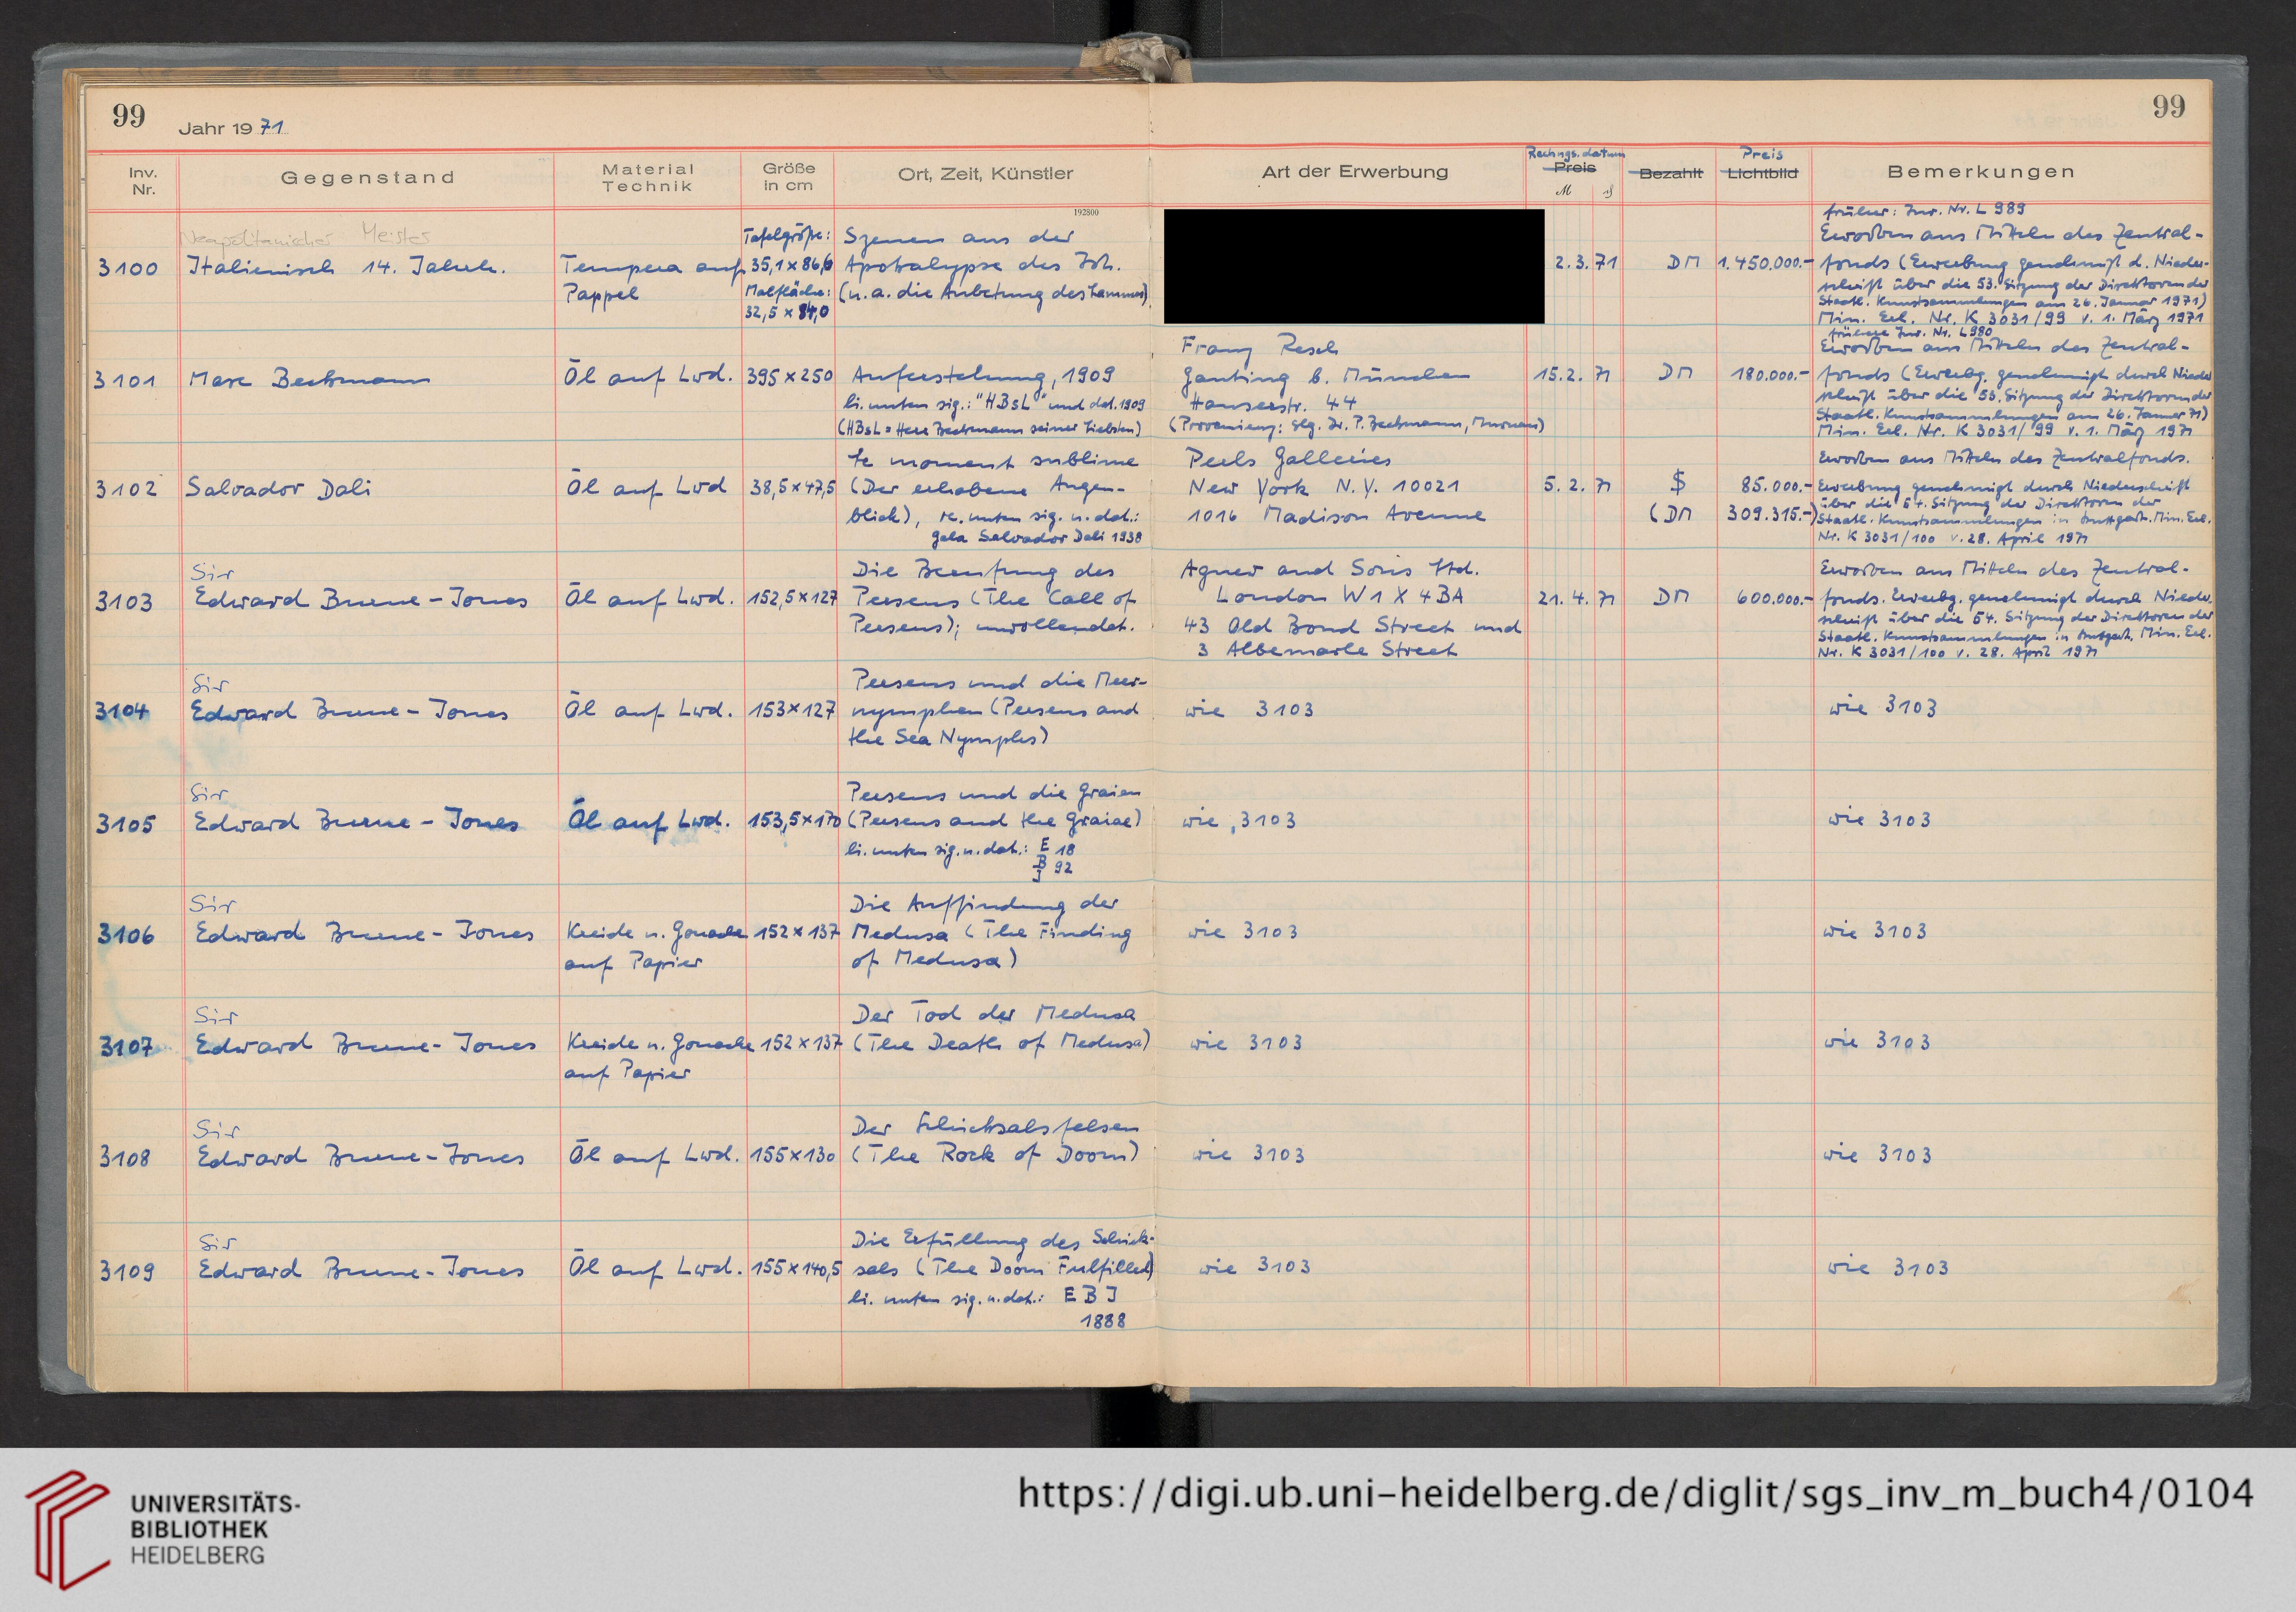 99
Jahr 1971
99
Inv. Nr.
Gegenstand
Material Technik
Größe in cm
Ort, Zeit, Künstler
Art der Erwerbung
Rechngs.datum
Preis
M
Bezahlt
Preis
Lichtbild
Bemerkungen
192800
Neapolitanischer Meister
3100
Italienisch 14. Jahrh.
Tempera auf
Pappel
Tafelgröße:
35,1 x 86,6
Malfläche:
32,5 x 84,0
Szenen aus der
Apokalypse des Joh.
(u.a. die Anbetung des Lammes)
2.3.71
DM
1.450.000.-
früher: Inv. Nr. L 989
Erworben aus Mitteln des Zentral-
fonds (Erwerbung genehmigt d. Nieder-
schrift über die 53. Sitzung der Direktoren der
Staatl. Kunstsammlungen am 26. Januar 1971)
Min. Erl. Nr. K 3031/99 v. 1. März 1971
3101
Max Beckmann
Öl auf Lwd.
395 x 250
Auferstehung, 1909
li. unten sig.: "HBsL" und dat. 1909
(HBsL = Herr Beckmann seiner Liebsten)
Franz Resch
Gauting b. München
Hauserstr. 44
(Provenienz: Slg. Dr. P. Beckmann, Murnau)
15.2.71
DM
180.000.-
frühere Inv. Nr. L 980
Erworben aus Mitteln des Zentral-
fonds (Erwerbg. genehmigt durch Nieder
schrift über die 53. Sitzung der Direktoren der
Staatl. Kunstsammlungen am 26. Januar 71)
Min. Erl. Nr. K 3031/99 v. 1. März 1971
3102
Salvador Dali
Öl auf Lwd
38,5 x 47,5
Le moment sublime
(Der erhabene Augen-
blick), re. unten sig. u. dat.:
Gala Salvador Dali 1938
Perls Galleries
New York N.Y. 10021
1016 Madison Avenue
5.2.71
$
85.000.-
(DM
309.315.-)
Erworben aus Mitteln des Zentralfonds.
Erwerbung genehmigt durch Niederschrift
über die 54. Sitzung der Direktoren der
Staatl. Kunstsammlungen in Stuttgart. Min. Erl.
Nr. K 3031/100 v. 28. April 1971
3103
Sir
Edward Burne-Jones
Öl auf Lwd.
152,5 x 127
Die Berufung des
Perseus (The Call of
Perseus); unvollendet.
Agnew and Sons Ltd.
London W1X 4BA
43 Old Bond Street und
3 Albemarle Street
21.4.71
DM
600.000.-
Erworben aus Mitteln des Zentral-
fonds. Erwerbg. genehmigt durch Nieder
schrift über die 54. Sitzung der Direktoren der
Staatl. Kunstsammlungen in Stuttgart, Min. Erl.
Nr. K 3031/100 v. 28. April 1971
3104
Sir
Edward Burne-Jones
Öl auf Lwd.
153 x 127
Perseus und die Meer-
nymphen (Perseus and
the Sea Nymphs)
wie 3103
wie 3103
3105
Sir
Edward Burne-Jones
Öl auf Lwd.
153,5 x 170
Perseus und die Graien
(Perseus and the Graiae)
li. unten sig. u. dat.: E 18
B 92
J
wie 3103
wie 3103
3106
Sir
Edward Burne-Jones
Kreide u. Gouache
auf Papier
152 x 137
Die Auffindung der
Medusa (The Finding
of Medusa)
wie 3103
wie 3103
3107
Sir
Edward Burne-Jones
Kreide u. Gouache
auf Papier
152 x 137
Der Tod der Medusa
(The Death of Medusa)
wie 3103
wie 3103
3108
Sir
Edward Burne-Jones
Öl auf Lwd.
155 x 130
Der Schicksalsfelsen
(The Rock of Doom)
wie 3103
wie 3103
3109
Sir
Edward Burne-Jones
Öl auf Lwd.
155 x 140,5
Die Erfüllung des Schick-
sals (The Doom Fulfilled)
li. unten sig. u. dat.: E B J
1888
wie 3103
wie 3103
UNIVERSITÄTS-
BIBLIOTHEK
HEIDELBERG
https://digi.ub.uni-heidelberg.de/diglit/sgs_inv_m_buch4/0104